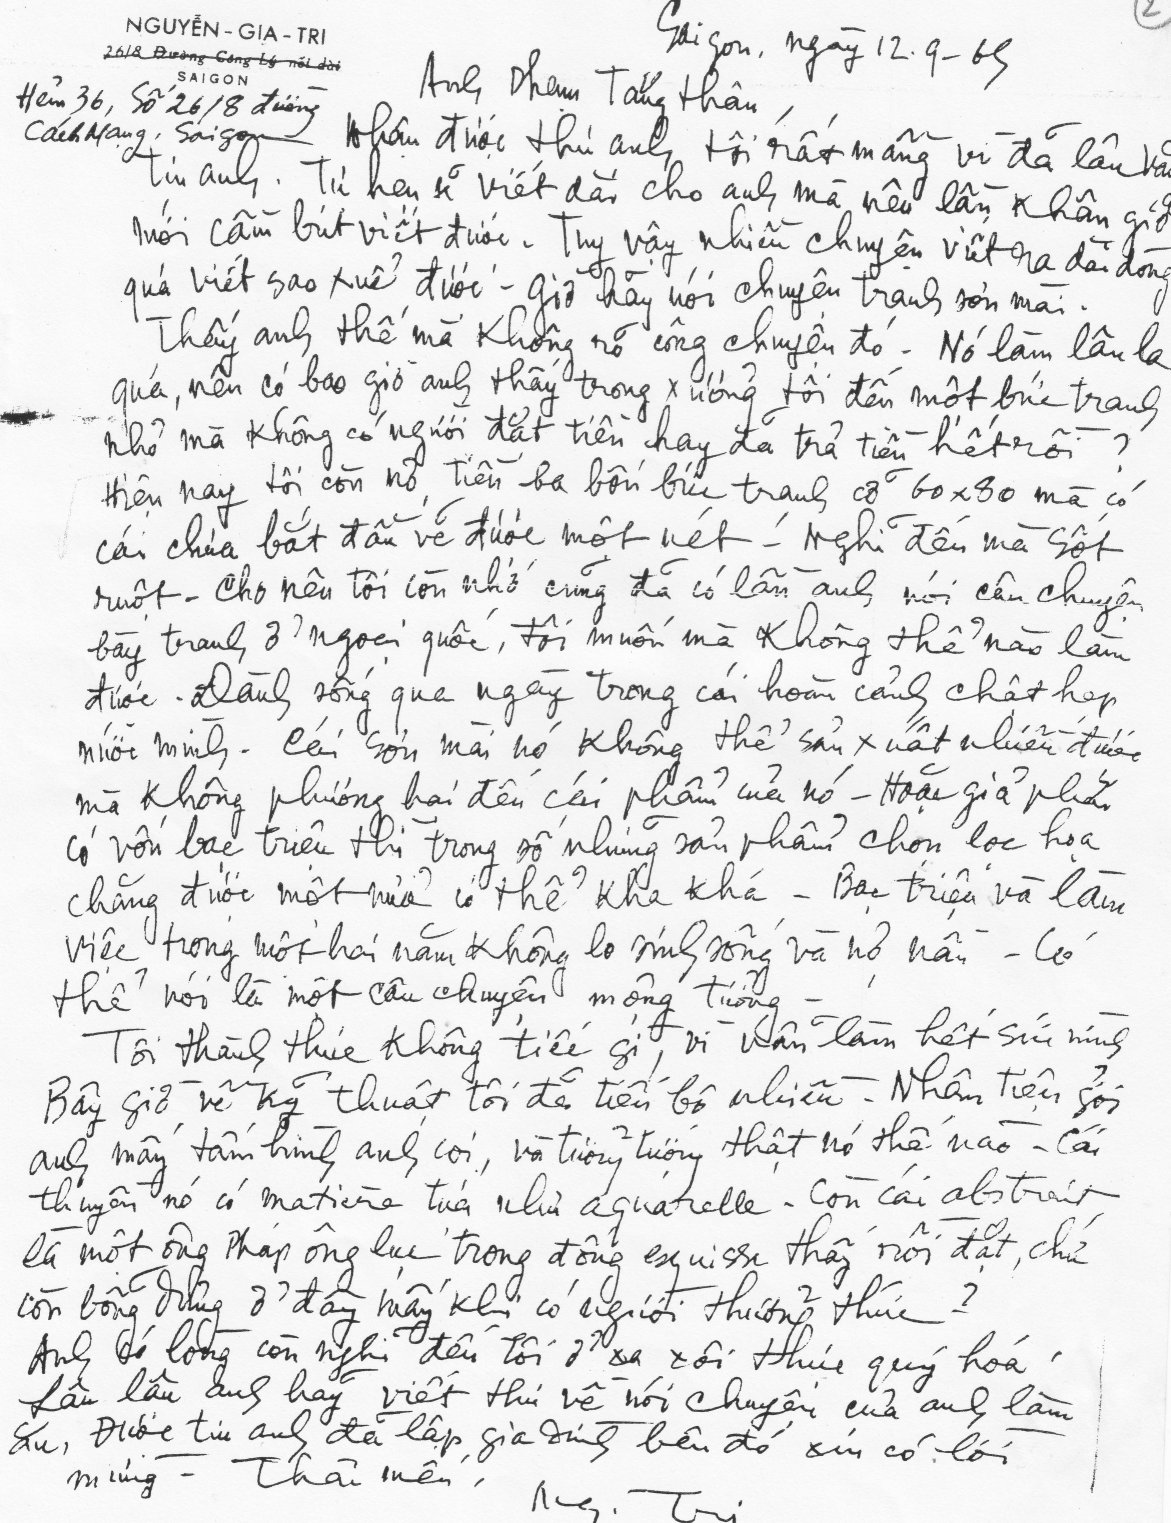 2
NGUYỄN-GIA-TRI
26/8 Đường Công Lý nối dài
SAIGON
Hẻm 36, Số 26/8 đường
Cách Mạng, Saigon
Saigon, ngày 12-9-69
Anh Phạm Tăng thân,
Nhận được thư anh, tôi rất mừng vì đã lâu vắng
tin anh. Tự hẹn sẽ viết dài cho anh mà nên lần khân giờ
mới cầm bút viết được. Tuy vậy nhiều chuyện viết ra dài dòng
quá viết sao xuể được - Giờ hãy nói chuyện tranh sơn mài.
Thấy anh thế mà không rõ công chuyện đó - Nó làm lâu la
quá, nên có bao giờ anh thấy trong xưởng tôi đến một bức tranh
nhỏ mà không có người đặt tiền hay đã trả tiền hết rồi?
Hiện nay tôi còn nợ tiền ba bốn bức tranh cỡ 60x80 mà có
cái chưa bắt đầu vẽ được một nét - Nghĩ đến mà sốt
ruột - Cho nên tôi còn nhớ cũng đã có lần anh nói câu chuyện
bày tranh ở ngoại quốc, tôi muốn mà không thể nào làm
được. Đành sống qua ngày trong cái hoàn cảnh chật hẹp
nước mình. Cái sơn mài nó không thể sản xuất nhiều được
mà không phương hại đến cái phẩm của nó - Hoặc giả phải
có vốn bạc triệu thì trong số những sản phẩm chọn lọc họa
chăng được một nửa có thể kha khá - Bạc triệu và làm
việc trong một hai năm không lo sinh sống và nợ nần - Có
thể nói là một câu chuyện mộng tưởng -
Tôi thành thực không tiếc gì, vì vẫn làm hết sức mình
Bây giờ về kỹ thuật tôi đã tiến bộ nhiều - Nhân tiện gởi
anh mấy tấm hình anh coi, và tưởng tượng thật nó thế nào - Cái
thuyền nó có matière tựa như aquarelle - Còn cái abstrait
là một ông Pháp ông lục trong đống esquisse thấy rồi đặt, chứ
còn bỗng dưng ở đây mấy khi có người thưởng thức?
Anh có lòng còn nghĩ đến tôi ở xa xôi thực quý hóa.
Lâu lâu anh hãy viết thư về nói chuyện của anh làm
ăn. Được tin anh đã lập gia đình bên đó xin có lời
mừng - Thân mến,
Ng. Tri